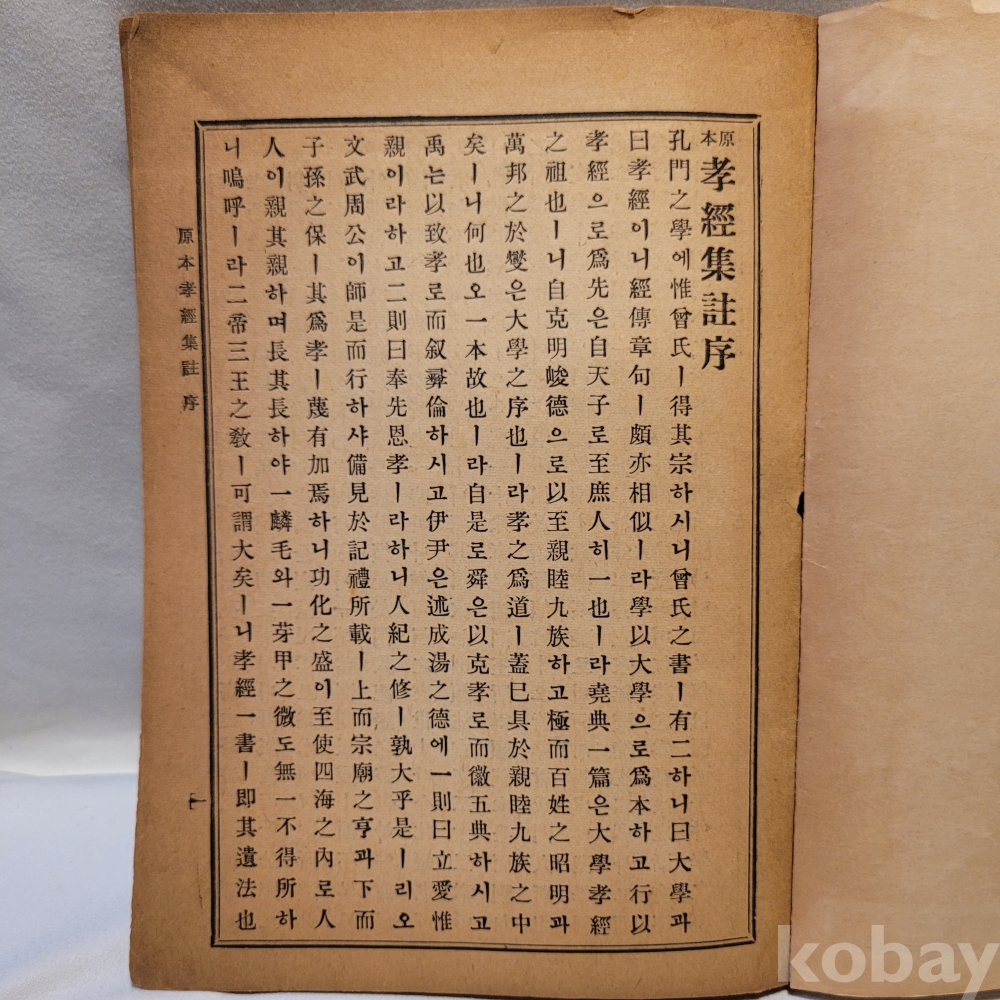 原本 孝經集註序
孔門之學에惟曾氏ㅣ得其宗하시니曾氏之書ㅣ有二하니曰大學과
曰孝經이니經傳章句ㅣ頗亦相似ㅣ라學以大學으로爲本하고行以
孝經으로爲先은自天子로至庶人히一也ㅣ라堯典一篇은大學孝經
之祖也ㅣ니自克明峻德으로以至親睦九族하고極而百姓之昭明과
萬邦之於變은大學之序也ㅣ라孝之爲道ㅣ蓋已具於親睦九族之中
矣ㅣ니何也오一本故也ㅣ라自是로舜은以克孝로而徽五典하시고
禹는以致孝로而叙彛倫하시고伊尹은述成湯之德에一則曰立愛惟
親이라하고二則曰奉先思孝ㅣ라하니人紀之修ㅣ孰大乎是ㅣ리오
文武周公이師是而行하샤備見於記禮所載ㅣ上而宗廟之享과下而
子孫之保ㅣ其爲孝ㅣ蔑有加焉하니功化之盛이至使四海之內로人
人이親其親하며長其長하야一麟毛와一芽甲之微도無一不得所하
니嗚呼ㅣ라二帝三王之敎ㅣ可謂大矣ㅣ니孝經一書ㅣ即其遺法也
原本孝經集註 序
一
kobay